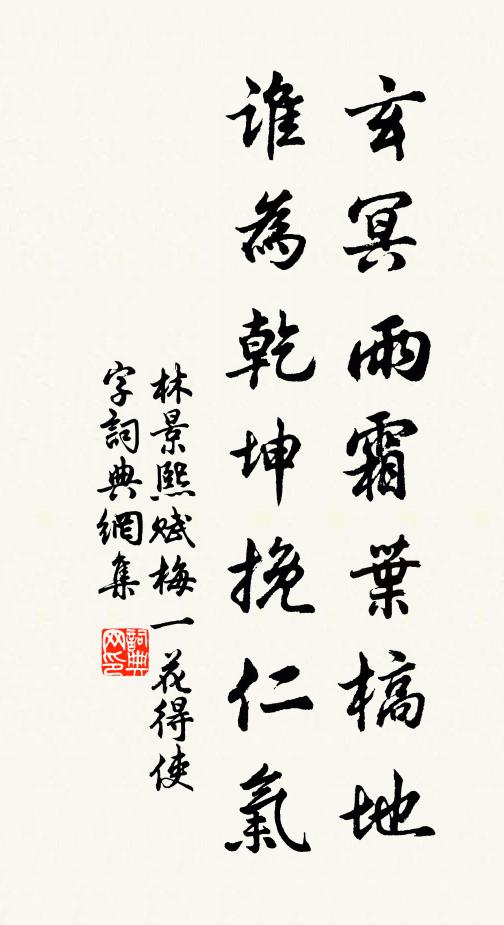 玄冥雨霜葉槁地
誰為乾坤挽仁氣
林景熙賦梅一花得使
字詞典網集
詞典网印